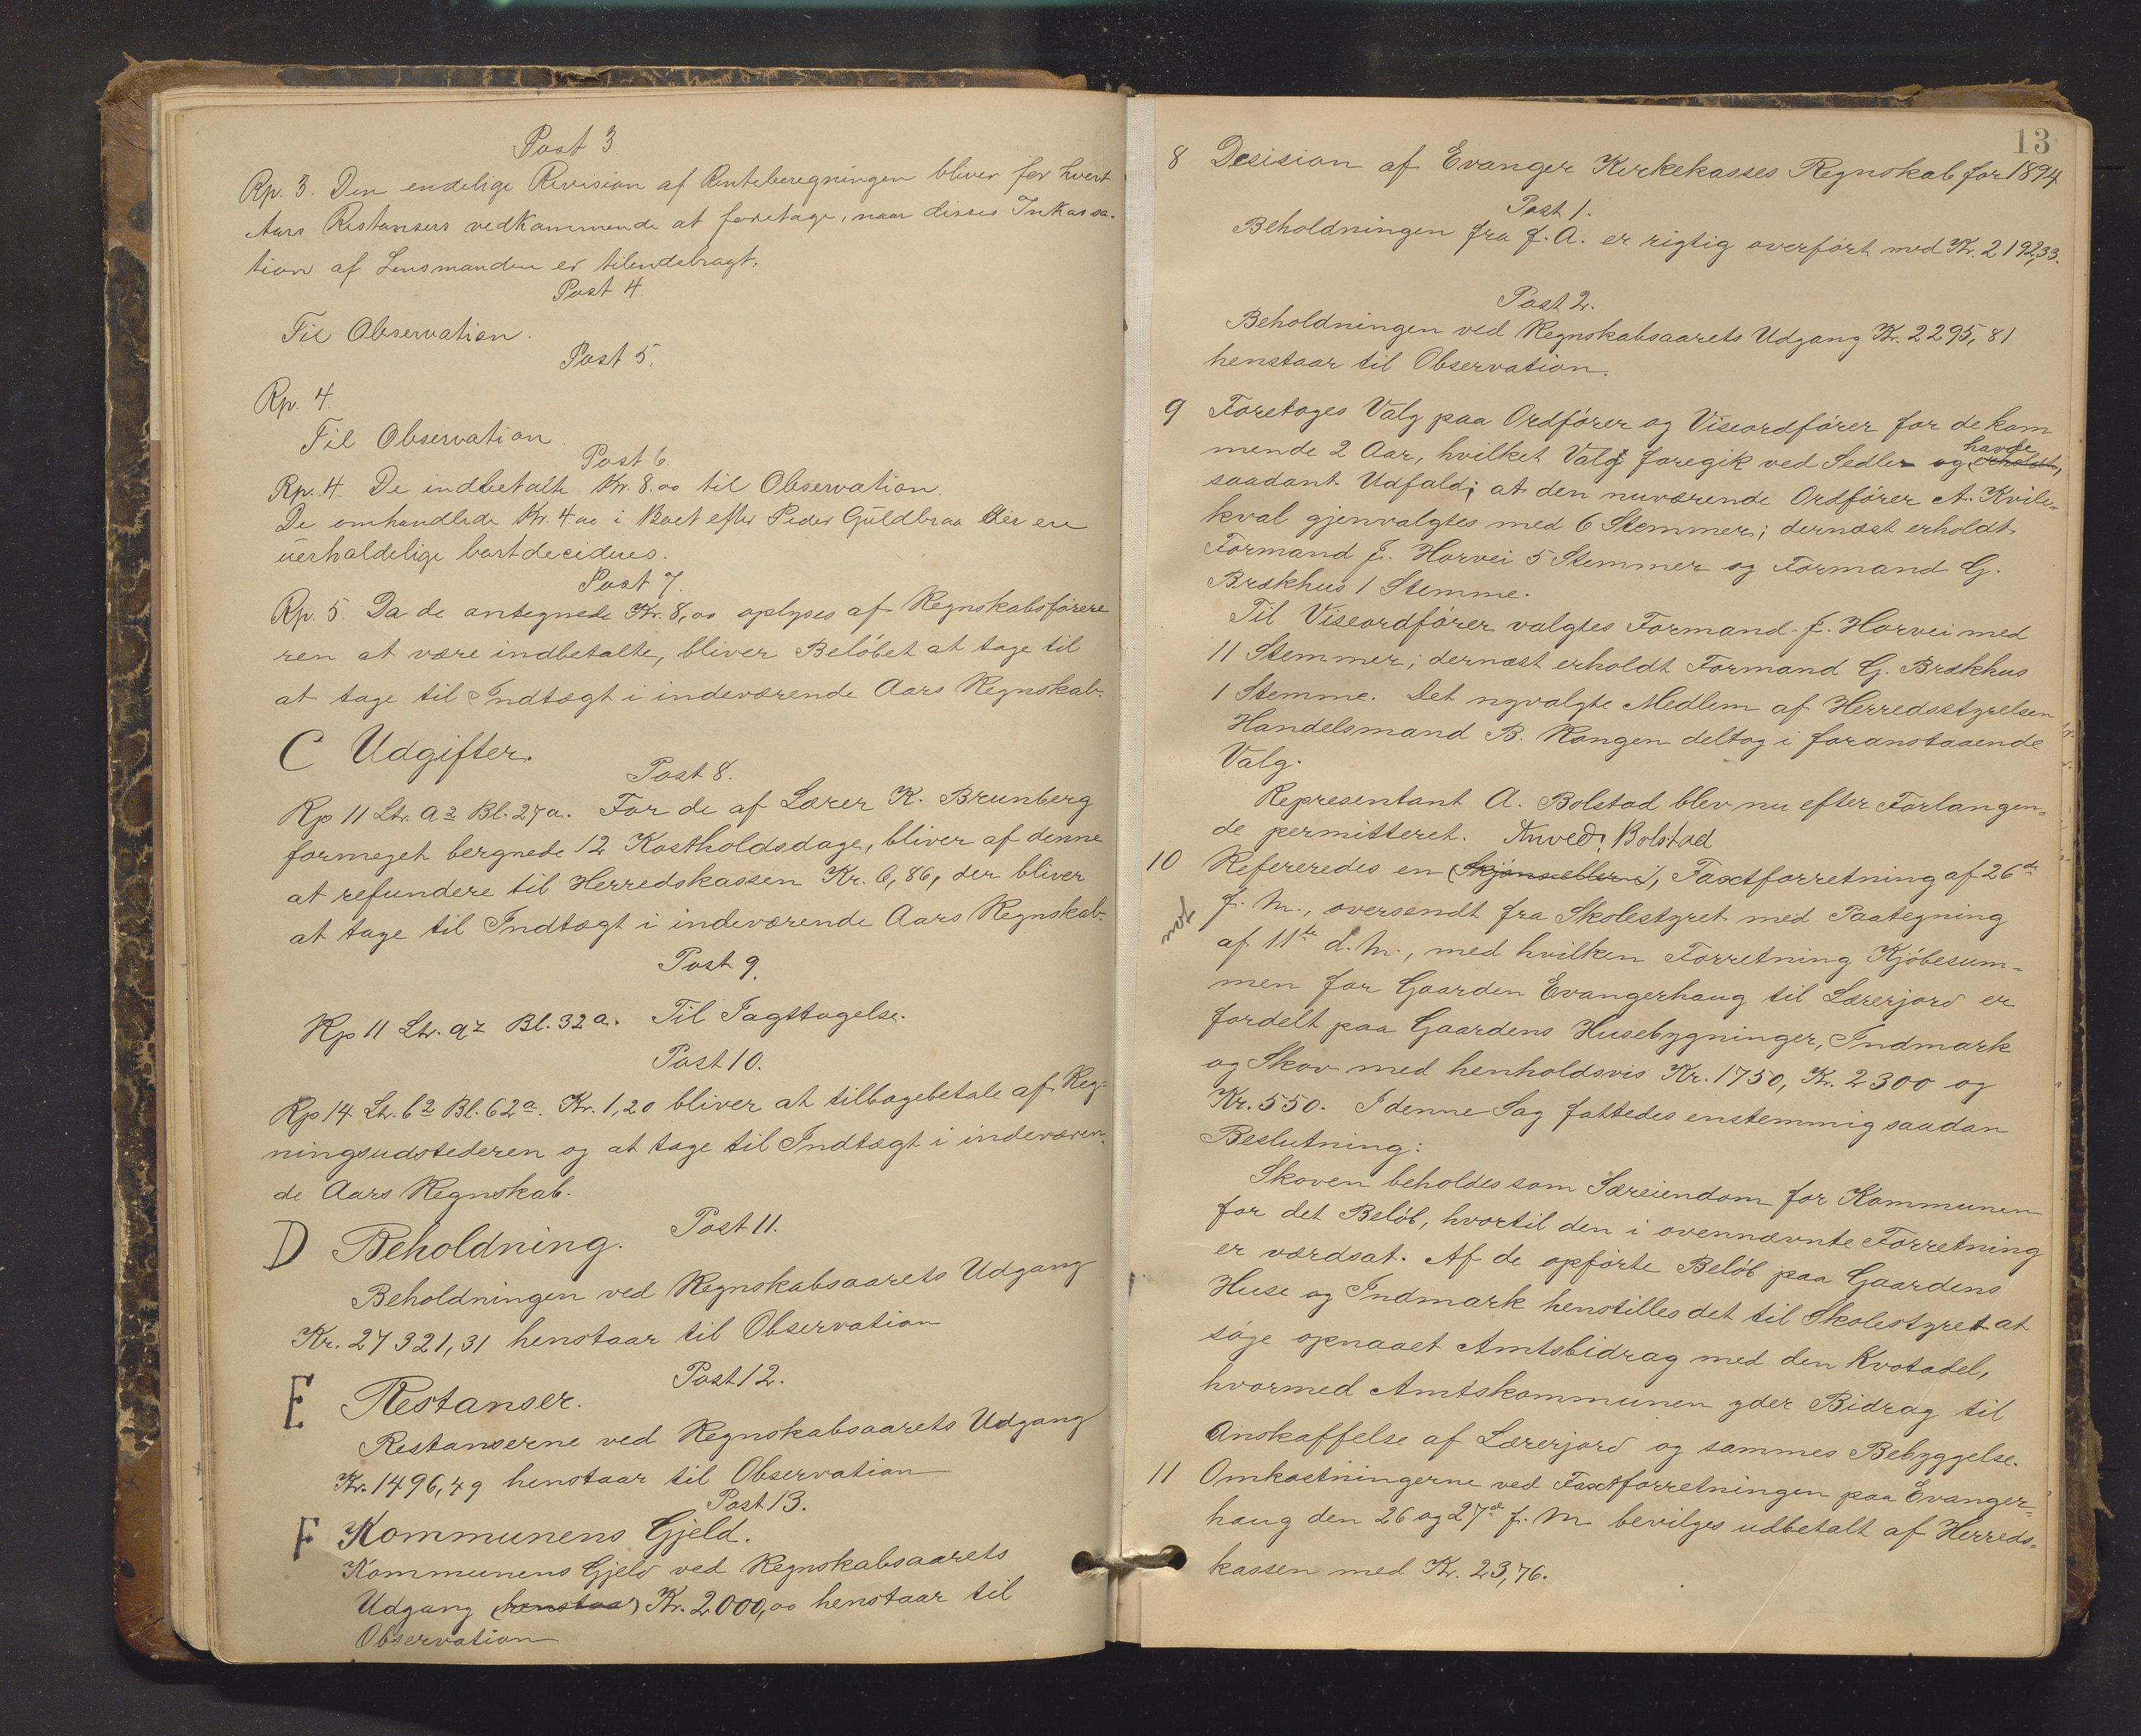 Post 3.
Rp. 3. Den endelige Revision af Renteberegningen bliver for hvert
Aars Restansers vedkommende at foretage, naar disses Inkassa-
tion af Lensmanden er tilendebragt.
Post 4.
Til Observation.
Post 5.
Rp. 4.
Til Observation.
Post 6.
Rp. 4. De indbetalte Kr. 8.00 til Observation.
De omhandlede Kr. 4.00 i Boet efter Peder Guldbraa der ere
uerholdelige bortdecideres.
Post 7.
Rp. 5. Da de antegnede Kr. 8,00 oplyses af Regnskabsförere
ren at være indbetalte, bliver Belöbet at tage til
at tage til Indtægt i indeværende Aars Regnskab.
C Udgifter.
Post 8.
Rp 11 Ltr. a2 Bl. 27a. For de af Lærer K. Brunberg
formeget beregnede 12 Kostholdsdage, bliver af denne
at refundere til Herredskassen Kr. 6,86, der bliver
at tage til Indtægt i indeværende Aars Regnskab.
Post 9.
Rp 11 Ltr. a2 Bl. 32a. Til Iagttagelse.
Post 10.
Rp 14 Ltr. b2 Bl. 62a. Kr. 1,20 bliver at tilbagebetale af Reg-
ningsudstederen og at tage til Indtægt i indeværen-
de Aars Regnskab.
Post 11.
D Beholdning.
Beholdningen ved Regnskabsaarets Udgang
Kr. 27321,31 henstaar til Observation
Post 12.
E Restanser.
Restanserne ved Regnskabsaarets Udgang
Kr. 1496,49 henstaar til Observation
Post 13.
F Kommunens Gjeld.
Kommunens Gjeld ved Regnskabsaarets
Udgang (henstaar) Kr. 2000,00 henstaar til
Observation
13
8 Desision af Evanger Kirkekasses Regnskab for 1894
Post 1.
Beholdningen fra f. A. er rigtig overfört med Kr. 2192,33.
Post 2.
Beholdningen ved Regnskabsaarets Udgang Kr. 2295,81
henstaar til Observation.
9 Foretoges Valg paa Ordförer og Viseordförer for de kom
mende 2 Aar, hvilket Valg foregik ved Sedler og (erholdt) havde
saadant Udfald; at den nuværende Ordförer A. Kvile-
kval gjenvalgtes med 6 Stemmer; dernæst erholdt
Formand J. Horvei 5 Stemmer og Formand G.
Brækhus 1 Stemme.
Til Viseordförer valgtes Formand J. Horvei med
11 Stemmer; dernæst erholdt Formand G. Brækhus
1 Stemme. Det nyvalgte Medlem af Herredsstyrelsen
Handelsmand B. Kongen deltog i foranstaaende
Valg.
Representant A. Bolstad blev nu efter Forlangen-
de permitteret. Anved. Bolstad
10 Refereredes en (Skjöns eller) Taxtforretning af 26de
not
f. M., oversendt fra Skolestyret med Paategning
af 11te d. M., med hvilken Forretning Kjöbesum-
men for Gaarden Evangerhaug til Lærerjord er
fordelt paa Gaardens Husebygninger, Indmark
og Skov med henholdsvis Kr. 1750, Kr. 2300 og
Kr. 550. I denne Sag fattedes enstemmig saadan
Beslutning:
Skoven beholdes som Særeiendom for Kommunen
for det Belöb, hvortil den i ovennævnte Forretning
er værdsat. Af de opförte Belöb paa Gaardens
Huse og Indmark henstilles det til Skolestyret at
söge opnaaet Amtsbidrag med den Kvotadel,
hvormed Amtskommunen yder Bidrag til
Anskaffelse af Lærerjord og sammes Bebyggelse.
11 Omkostningerne ved Taxtforretningen paa Evanger-
haug den 26 og 27de f. M. bevilges udbetalt af Herreds-
kassen med Kr. 23,76.